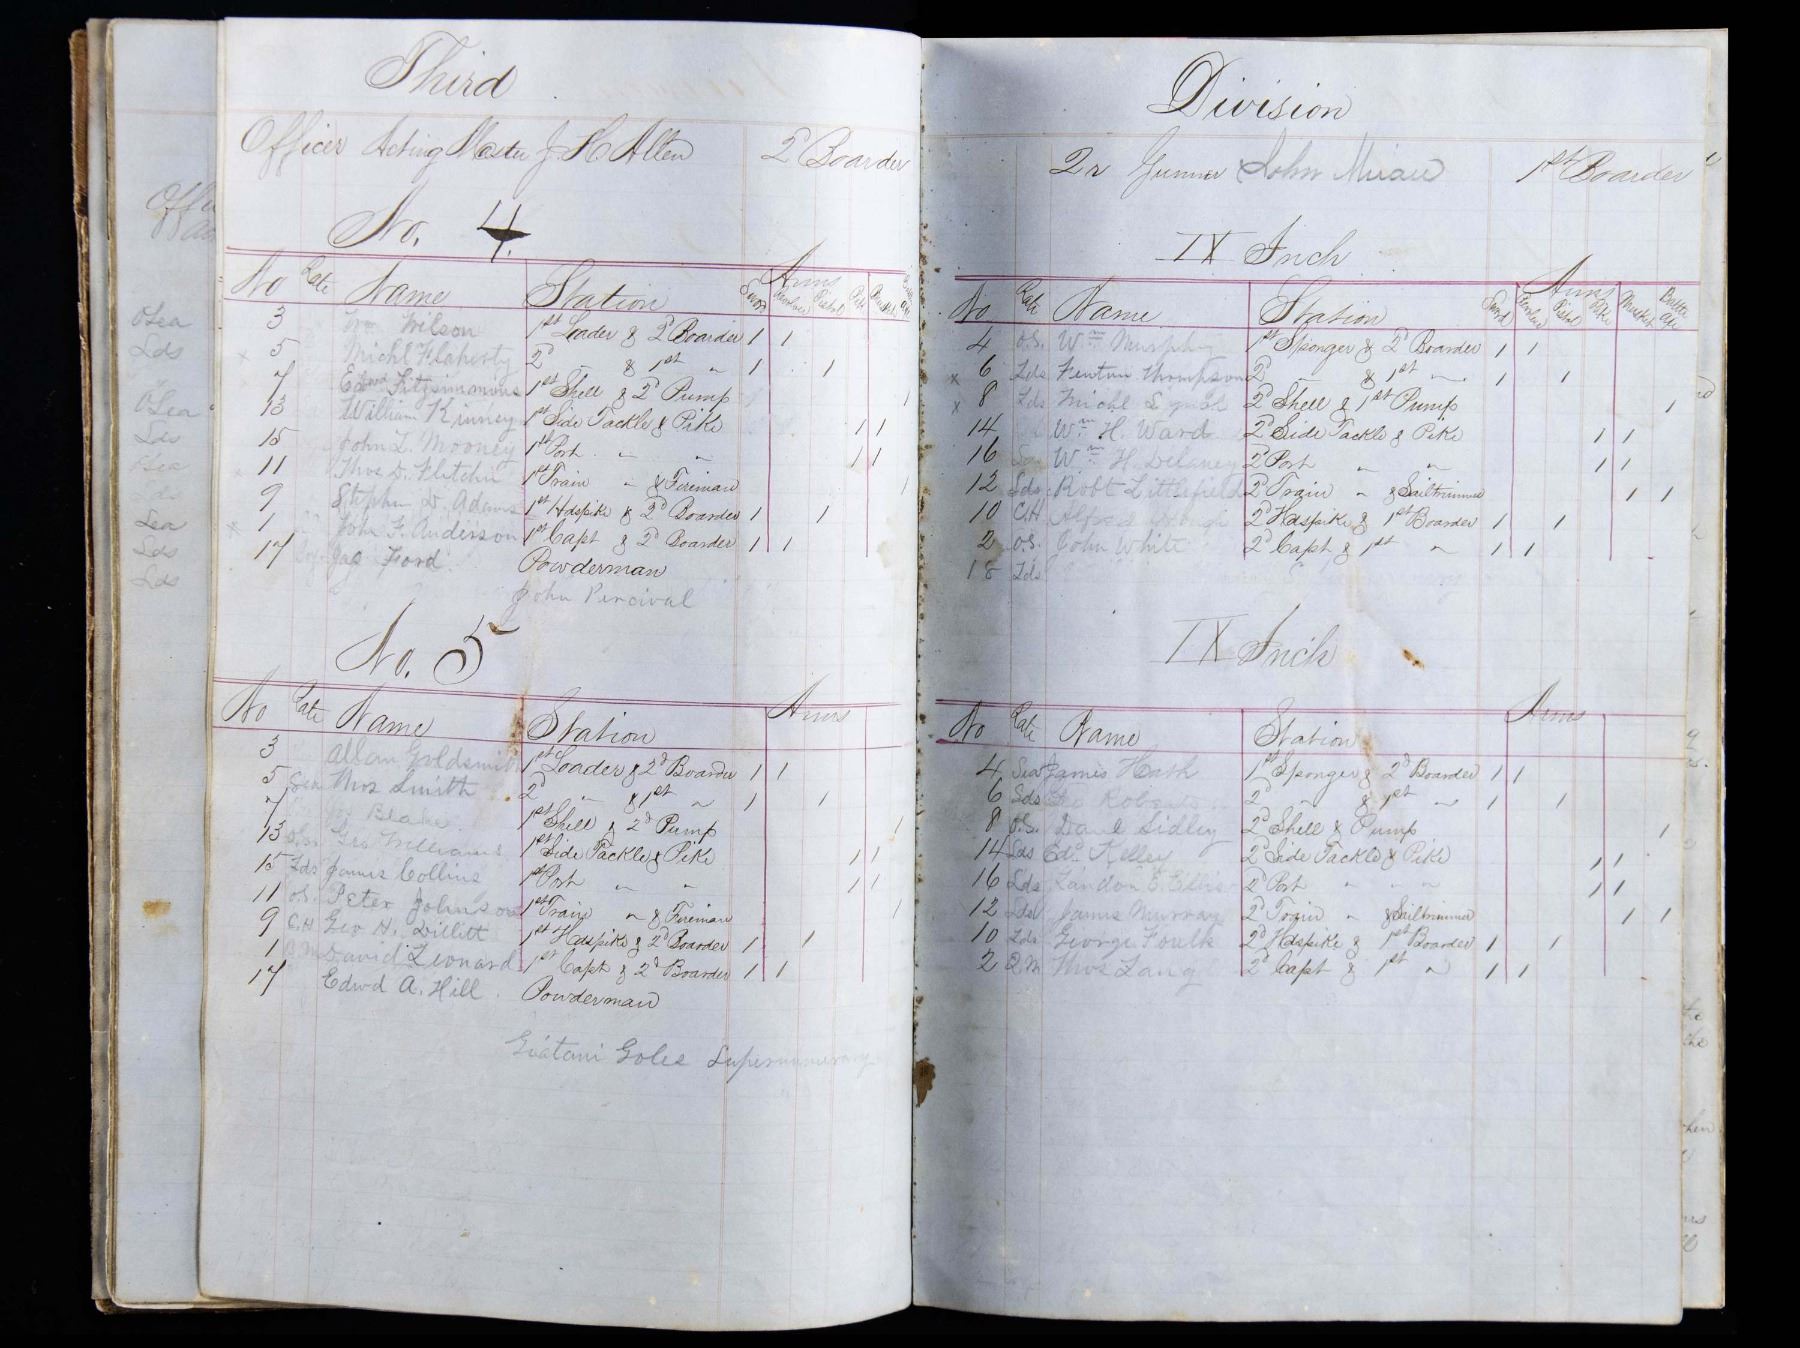 Third
Officer Acting Master J. H. Allen 2d Boarder
No. 4
No Rate Name Station Arms
Sword Revolver Pistol Pike Musket Battle axe
3 Wm Wilson 1st Loader & 2d Boarder 1 1
x 5 Michl Flaherty 2d " & 1st " 1 1
7 Edwd Fitzsimmins 1st Shell & 2d Pump 1
13 William Kinney 1st Side Tackle & Pike 1 1
15 John L. Mooney 1st Port " " 1 1
11 Thos D. Fletcher 1st Train " & Fireman 1
9 Stephen D. Adams 1st Hdspike & 2d Boarder 1 1
x 1 John F. Anderson 1st Capt & 2d Boarder 1 1
17 Jas Ford Powderman
John Percival
No. 5
No Rate Name Station Arms
3 Allan Goldsmith 1st Loader & 2d Boarder 1 1
5 Sea Thos Smith 2d " & 1st " 1 1
7 Blake 1st Shell & 2d Pump 1
13 Geo Williams 1st Side Tackle & Pike 1 1
15 Lds James Collins 1st Port " " 1 1
11 O.S. Peter Johnson 1st Train " & Fireman 1
9 C.H Geo H. Dillitt 1st Hdspike & 2d Boarder 1 1
1 Q.M David Leonard 1st Capt & 2d Boarder 1 1
17 Edwd A. Hill Powderman
Goles Supernumerary
Division
2r Gunner John 1st Boarder
IX Inch
No Rate Name Station Arms
Sword Revolver Pistol Pike Musket Battle axe
4 O.S. Wm Murphy 1st Sponger & 2d Boarder 1 1
x 6 Lds Fenton Thompson 2d " & 1st " 1 1
x 8 Lds Michl Lynch 2d Shell & 1st Pump 1
14 Wm H. Ward 2d Side Tackle & Pike 1 1
16 Wm H. Delaney 2d Port " " 1 1
12 Lds Robt Littlefield 2d Train " & Sailtrimmer 1 1
10 C.H 2d Hdspike & 1st Boarder 1 1
2 O.S. John White 2d Capt & 1st " 1 1
18 Lds
IX Inch
No Rate Name Station Arms
4 Sea James Heath 1st Sponger & 2d Boarder 1 1
6 Lds Geo Roberts 2d " & 1st " 1 1
8 O.S. Danl Sidley 2d Shell & Pump 1
14 Lds Edd Kelley 2d Side Tackle & Pike 1 1
16 Lds Landon E. Ellis 2d Port " " " 1 1
12 Lds James Murray 2d Train " & Sailtrimmer 1 1
10 Lds George Foulk 2d Hdspike & 1st Boarder 1 1
2 Q.M Thos Lang 2d Capt & 1st " 1 1
OSea
Lds
"
OSea
Lds
Lds
Sea
Lds
Lds